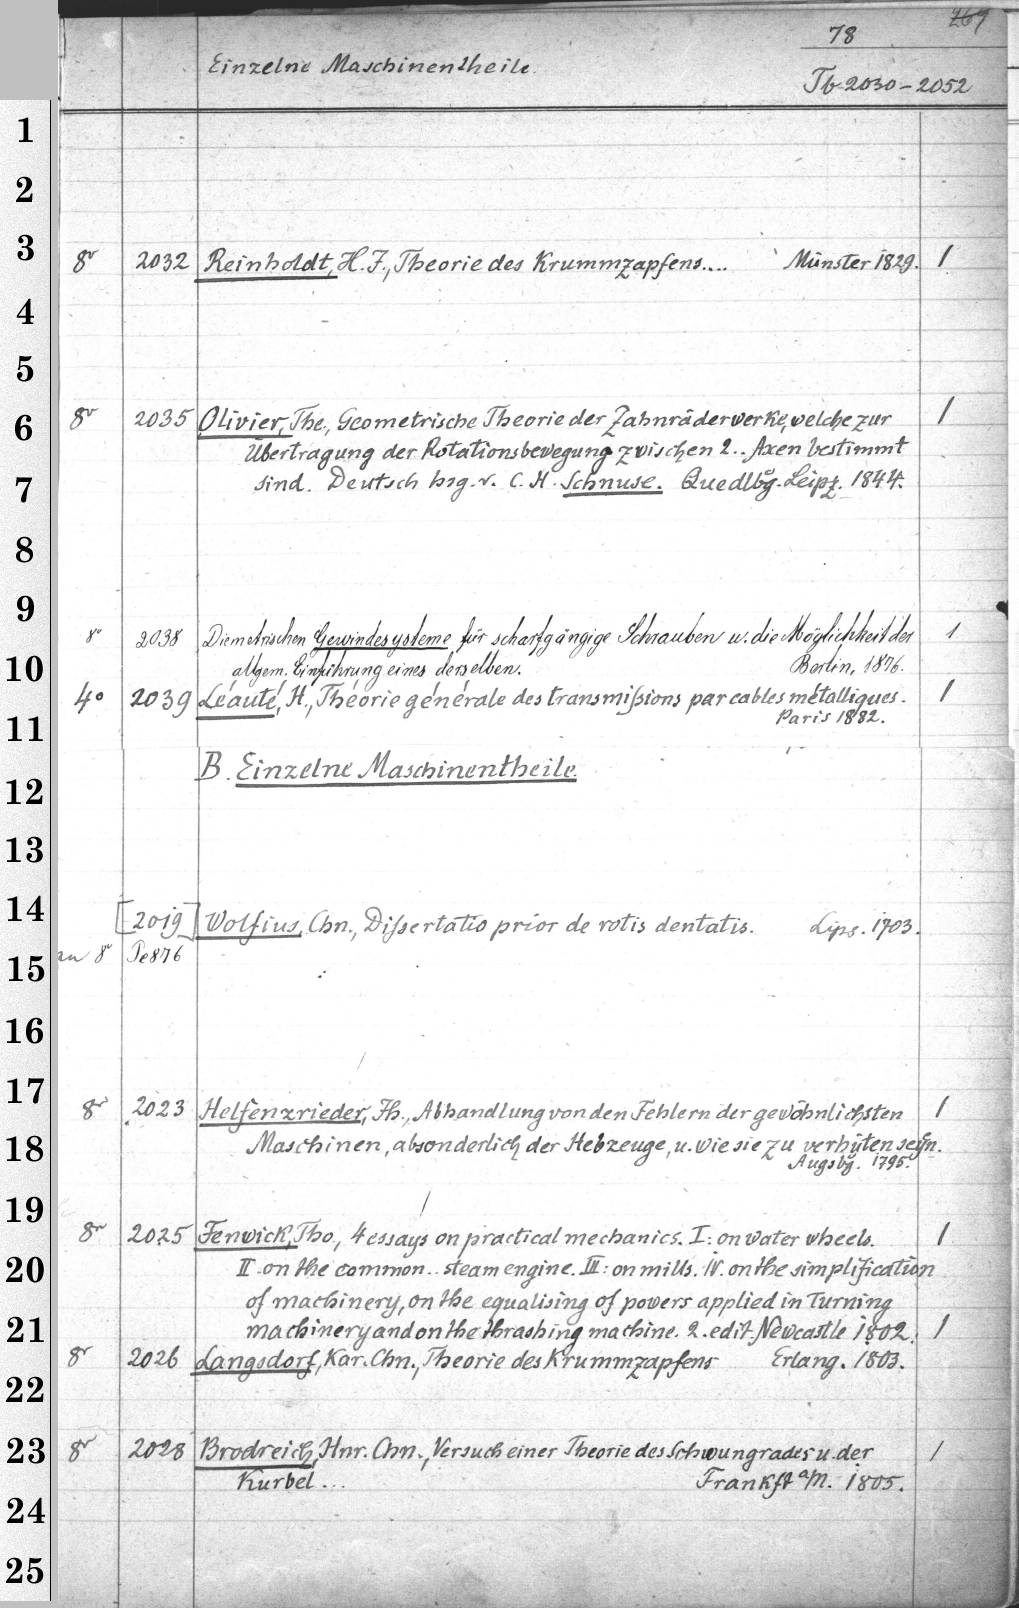 269
78
Einzelne Maschinentheile.
Tb 2030-2052
1
2
3
8º 2032 Reinholdt, H. F., Theorie des Krummzapfens.... Münster 1829. 1
4
5
6
8º 2035 Olivier, The., Geometrische Theorie der Zahnräderwerke, welche zur 1
Übertragung der Rotationsbewegung zwischen 2.. Axen bestimmt
7
sind. Deutsch hsg. v. C. H. Schnuse. Quedlbg. Leipz. 1844.
8
9
8º 2038 Die metrischen Gewindesysteme für scharfgängige Schrauben u. die Möglichkeit der 1
10
allgem. Einführung eines derselben. Berlin, 1876.
4º 2039 Léauté, H., Théorie générale des transmissions par cables métalliques. 1
11
Paris 1882.
B. Einzelne Maschinentheile.
12
13
14
[2019] Wolfius, Chn., Dissertatio prior de rotis dentatis. Lips. 1703.
15
an 8º Pe876
16
17
8º 2023 Helfenzrieder, Jh., Abhandlung von den Fehlern der gewöhnlichsten 1
18
Maschinen, absonderlich der Hebzeuge, u. wie sie zu verhüten seyn.
Augsbg. 1795.
19
8º 2025 Fenwick, Tho., 4 essays on practical mechanics. I: on water wheels. 1
20
II. on the common.. steam engine. III: on mills. IV. on the simplification
of machinery, on the equalising of powers applied in turning
21
machinery and on the thrashing machine. 2. edit. Newcastle 1802. 1
8º 2026 Langsdorf, Kar. Chn., Theorie des Krummzapfens Erlang. 1803.
22
23
8º 2028 Brodreich, Hnr. Chn., Versuch einer Theorie des Schwungrades u. der 1
Kurbel... Frankft a/M. 1805.
24
25